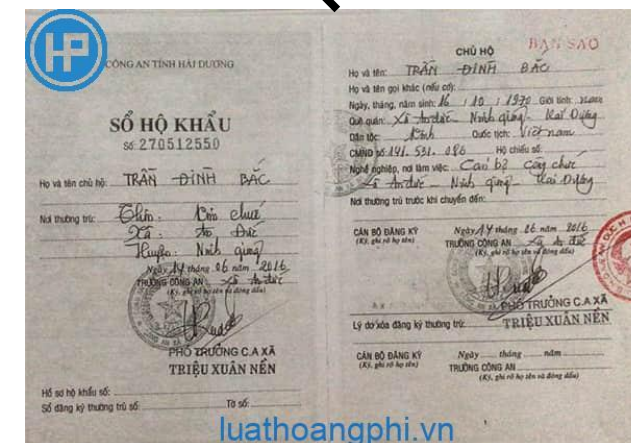 HP
CÔNG AN TỈNH HẢI DƯƠNG
SỔ HỘ KHẨU
Số: 270512550
Họ và tên chủ hộ: TRẦN ĐÌNH BẮC
Nơi thường trú: Thôn:
Xã: An Đức
Huyện: Ninh giang
Ngày 14 tháng 06 năm 2016
TRƯỞNG CÔNG AN: Xã An đức
(Ký, ghi rõ họ tên và đóng dấu)
PHÓ TRƯỞNG C.A XÃ
TRIỆU XUÂN NỀN
Hồ sơ hộ khẩu số:
Sổ đăng ký thường trú số: Tờ số:
BẢN SAO
CHỦ HỘ
Họ và tên: TRẦN ĐÌNH BẮC
Họ và tên gọi khác (nếu có):
Ngày, tháng, năm sinh: 16 / 10 / 1970 Giới tính: nam
Quê quán: Xã An đức - Ninh giang - Hải Dương
Dân tộc: Kinh Quốc tịch: Việt nam
CMND số: 141. 531. 086 Hộ chiếu số:
Nghề nghiệp, nơi làm việc: Cán bộ công chức
Xã An đức - Ninh giang - Hải Dương
Nơi thường trú trước khi chuyển đến:
Ngày 14 tháng 06 năm 2016
CÁN BỘ ĐĂNG KÝ TRƯỞNG CÔNG AN Xã An đức
(Ký, ghi rõ họ tên) (Ký, ghi rõ họ tên và đóng dấu)
PHÓ TRƯỞNG C.A XÃ
TRIỆU XUÂN NỀN
Lý do xóa đăng ký thường trú:
Ngày tháng năm
CÁN BỘ ĐĂNG KÝ TRƯỞNG CÔNG AN
(Ký, ghi rõ họ tên) (Ký, ghi rõ họ tên và đóng dấu)
luathoangphi.vn